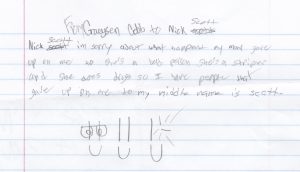 From Graysen Cobb to Nick Scott
Nick Scott im sorry about what happend my mom gave
up on me to she's a bad person she's a striper
and she does drugs so I have people that
gave up on me to my middle name is scott.